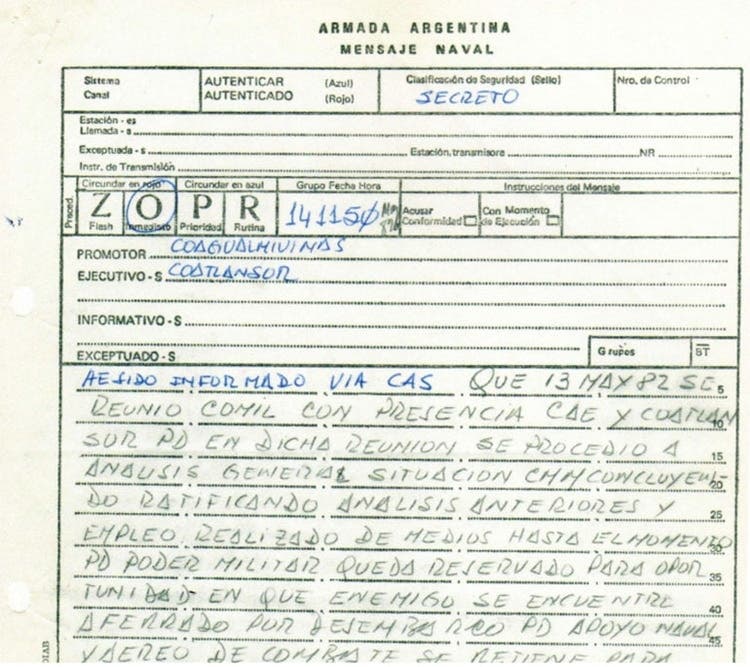 ARMADA ARGENTINA
MENSAJE NAVAL
Sistema
Canal
AUTENTICAR (Azul)
AUTENTICADO (Rojo)
Clasificación de Seguridad (Sello)
SECRETO
Nro. de Control
Estación - es
Llamada - s
Exceptuada - s Estación transmisora NR
Instr. de Transmisión
Circundar en rojo Circundar en azul Grupo Fecha Hora Instrucciones del Mensaje
Preced. Z O P R 141150 Acusar Conformidad Con Momento de Ejecución
Flash Inmediato Prioridad Rutina
PROMOTOR COAGUALMIVINAS
EJECUTIVO - S COATLANSUR
INFORMATIVO - S
EXCEPTUADO - S Grupos BT
HE SIDO INFORMADO VIA CAS QUE 13 MAY 82 SE 5
REUNIO COMIL CON PRESENCIA CAE Y COATLAN 10
SUR PD EN DICHA REUNION SE PROCEDIO A 15
ANALISIS GENERAL SITUACION CMM CONCLUYEN- 20
DO RATIFICANDO ANALISIS ANTERIORES Y 25
EMPLEO REALIZADO DE MEDIOS HASTA EL MOMENTO 30
PD PODER MILITAR QUEDA RESERVADO PARA OPOR 35
TUNIDAD EN QUE ENEMIGO SE ENCUENTRE 40
AFERRADO POR DESEMBARCO PD APOYO NAVAL 45
Y AEREO DE COMBATE SE RETIENE PARA